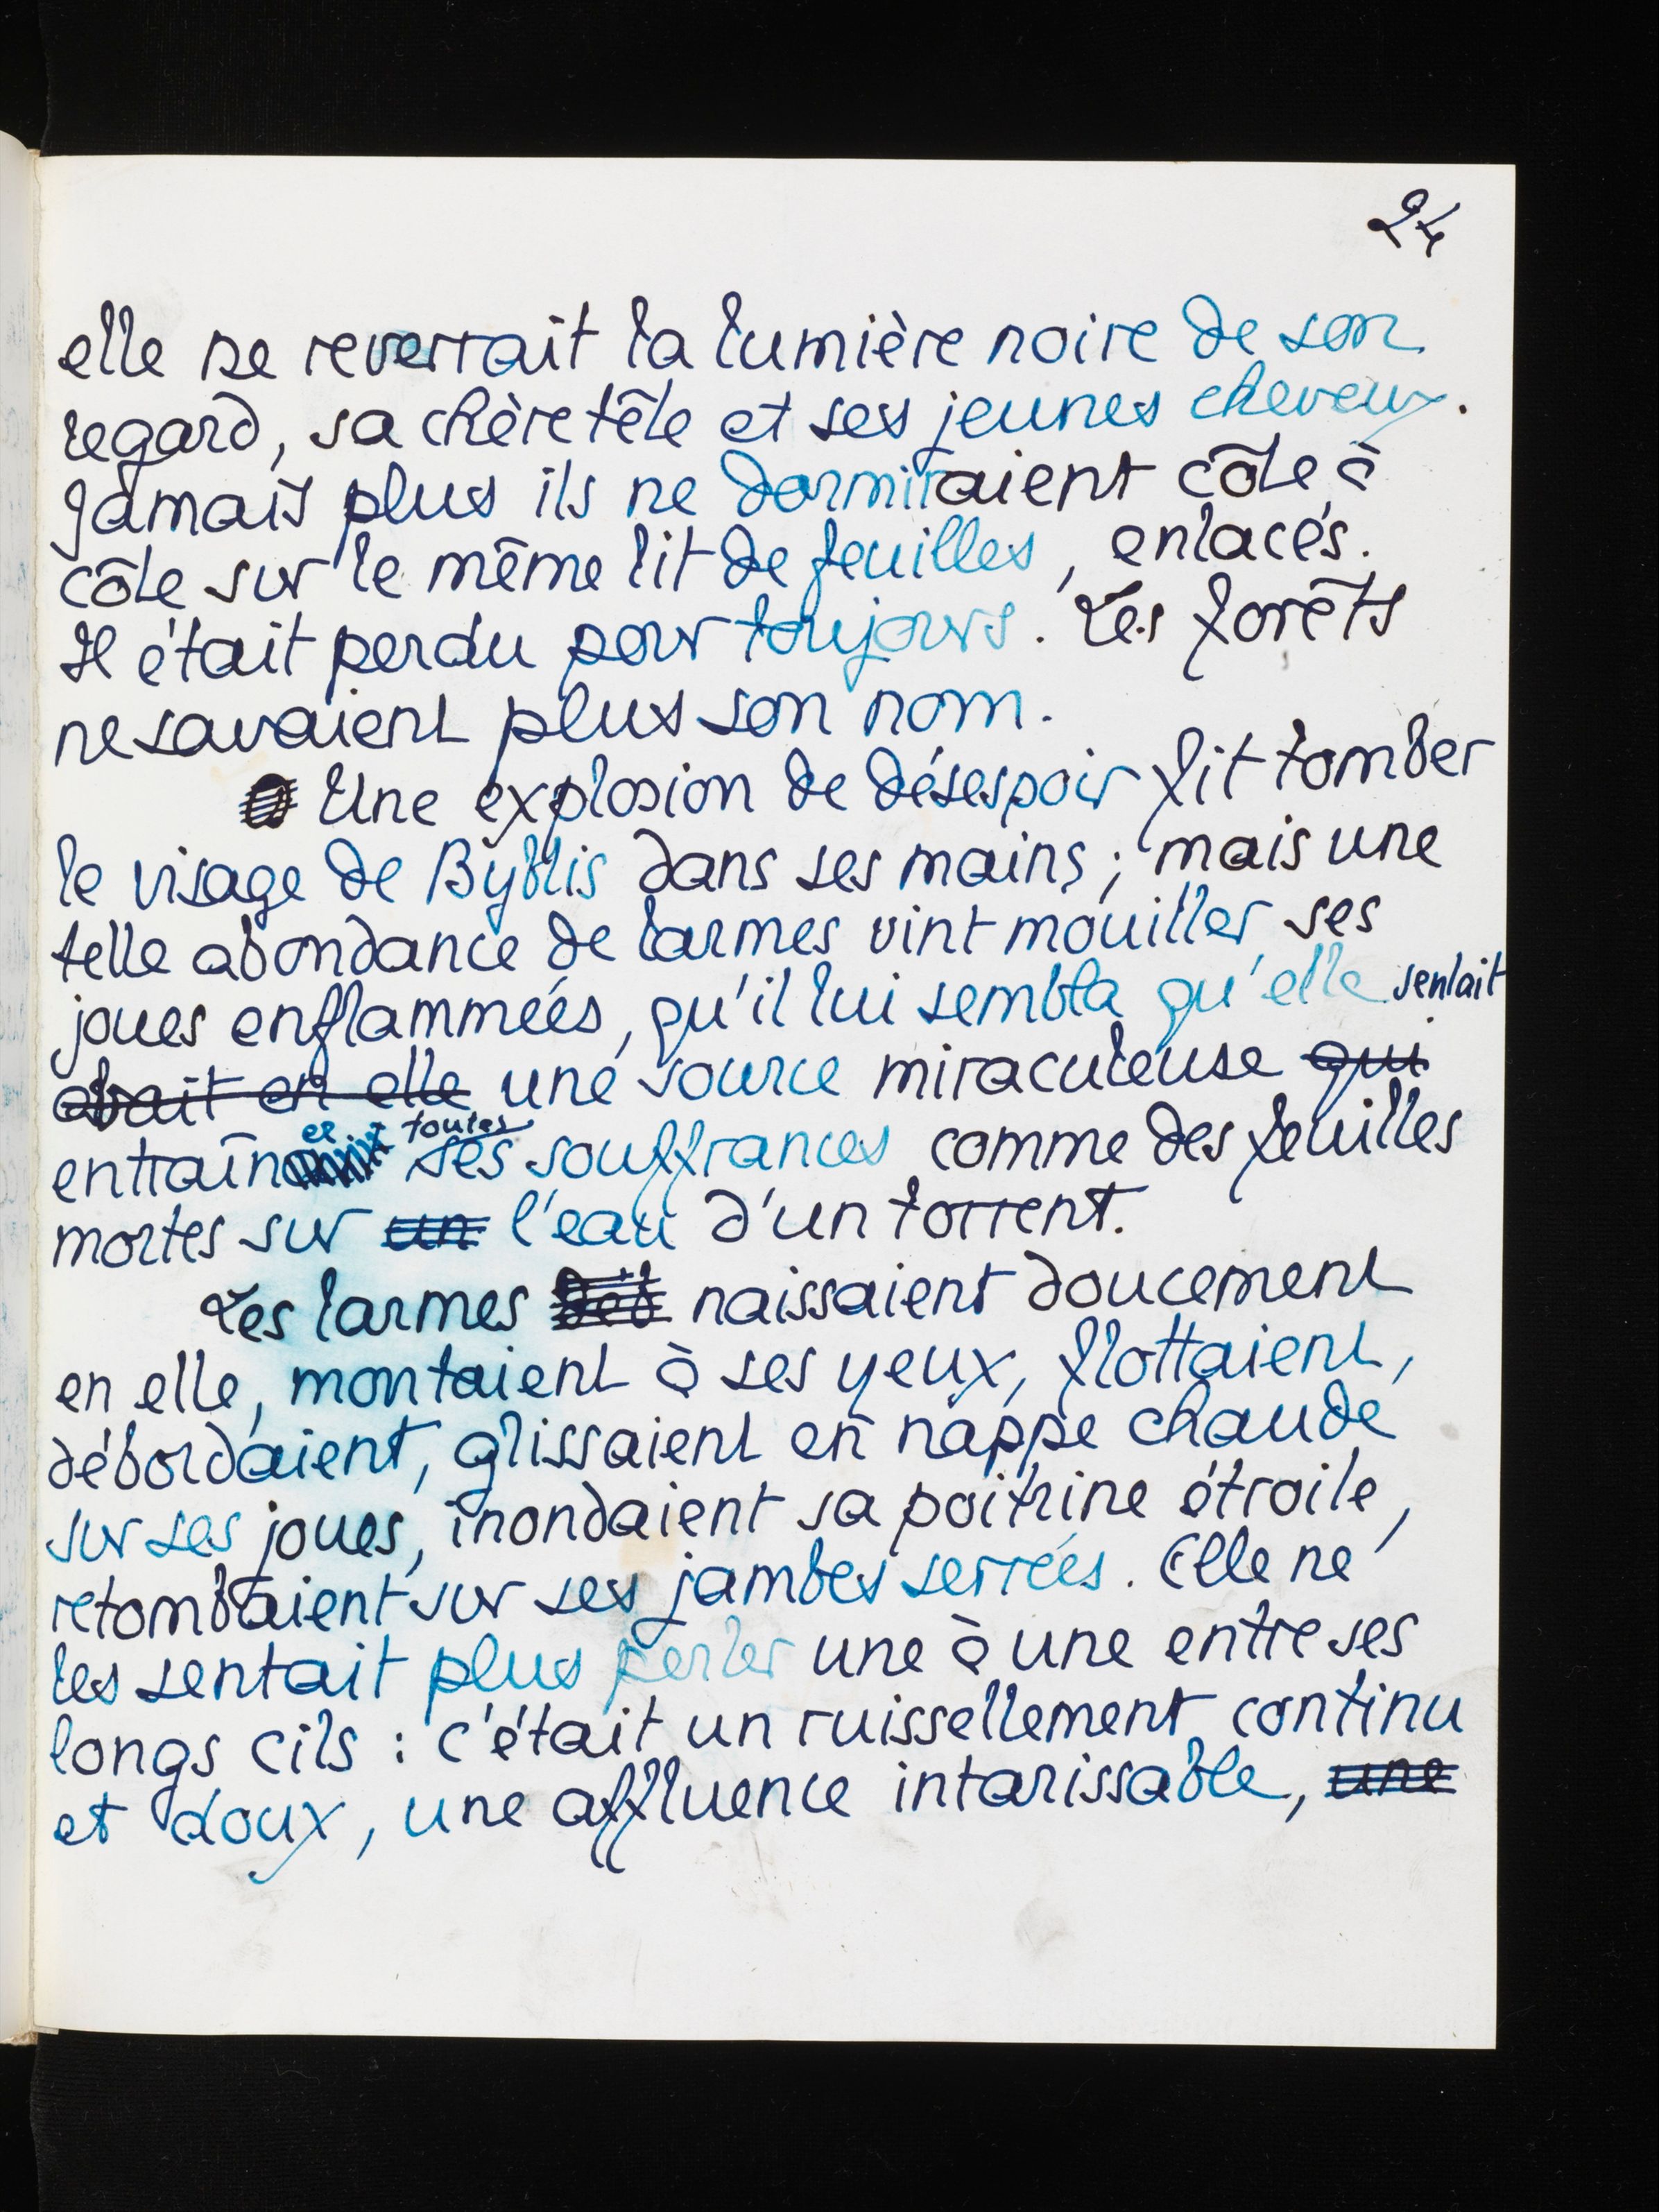 24
elle ne reverrait la lumière noire de son
regard, sa chère tête et ses jeunes cheveux.
Jamais plus ils ne dormiraient côte à
côte sur le même lit de feuilles, enlacés.
Il était perdu pour toujours. Les forêts
ne savaient plus son nom.
Une explosion de désespoir fit tomber
le visage de Byblis dans ses mains ; mais une
telle abondance de larmes vint mouiller ses
joues enflammées, qu'il lui sembla qu'elle sentait
en elle une source miraculeuse qui
er toutes
entraîn ses souffrances comme des feuilles
mortes sur un l'eau d'un torrent.
Les larmes naissaient doucement
en elle, montaient à ses yeux, flottaient,
débordaient, glissaient en nappe chaude
sur ses joues, inondaient sa poitrine étroite,
retombaient sur ses jambes serrées. Elle ne
les sentait plus perler une à une entre ses
longs cils : c'était un ruissellement continu
et doux, une affluence intarissable, une